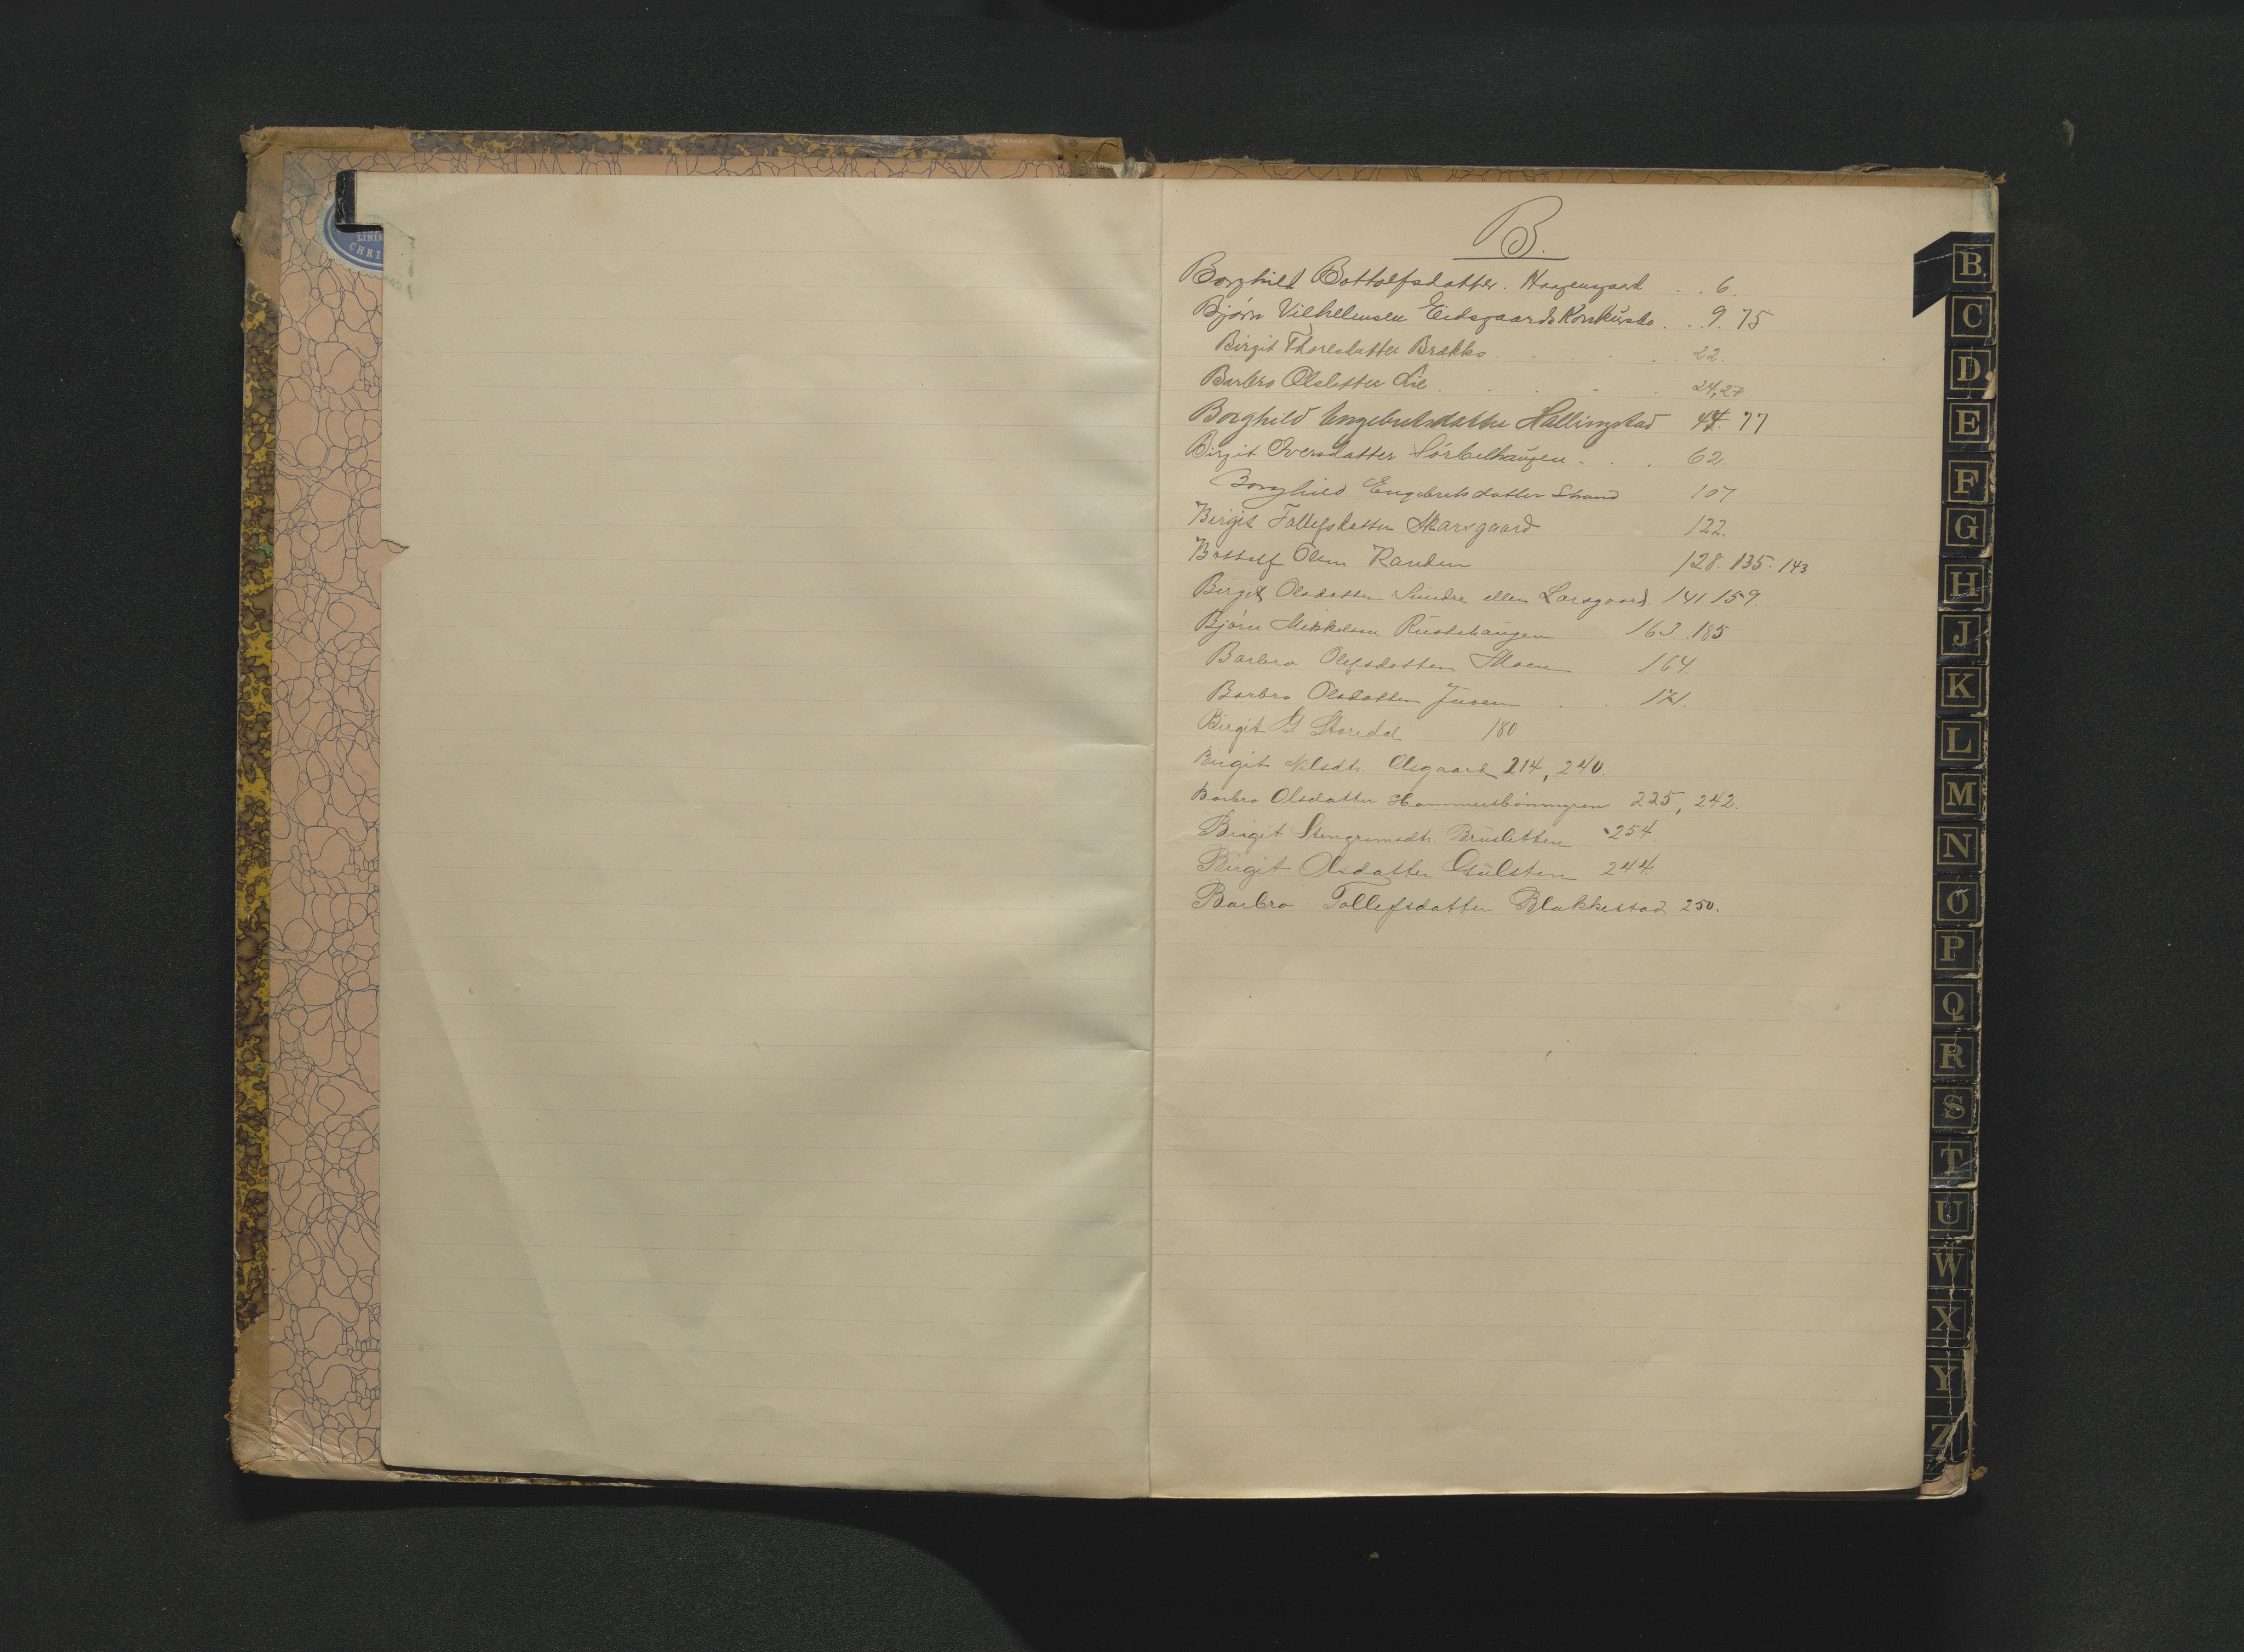 LINIE
CHRI
B.
Borghild Bottolfsdatter. Haagensgaard . . 6.
Bjørn Vilhelmsen Eidsgaards Konkursbo . . 9. 75
Birgit Thoresdatter Brækko . . . . 22.
Barbro Olsdatter Lie . . . . 24, 27
Borghild Engebretsdatter Hallingstad 44. 77
Birgit Iversdatter Sørbelhaugen . . . 62.
Borghild Engebretsdatter Strand 107
Birgit Tollefsdatter Skarsgaard 122.
Bottolf Olsen Randen 128. 135. 143
Birgit Olsdatter Sundre eller Larsgaard 141. 159.
Bjørn Mikkelsen Rustehaugen 163. 185
Barbro Olefsdatter Moen 164.
Barbro Olsdatter Juven . . 171.
Birgit G Storedal 180
Birgit Nilsdtr. Olsgaard 214, 240.
Barbro Olsdatter 225, 242.
Birgit Stengrimsdtr. Brusletten 254.
Birgit Olsdatter Gulsten 244.
Barbro Tollefsdatter Blakkestad 250.
B
C
D
E
F
G
H
J
K
L
M
N
O
P
Q
R
S
T
U
W
X
Y
Z